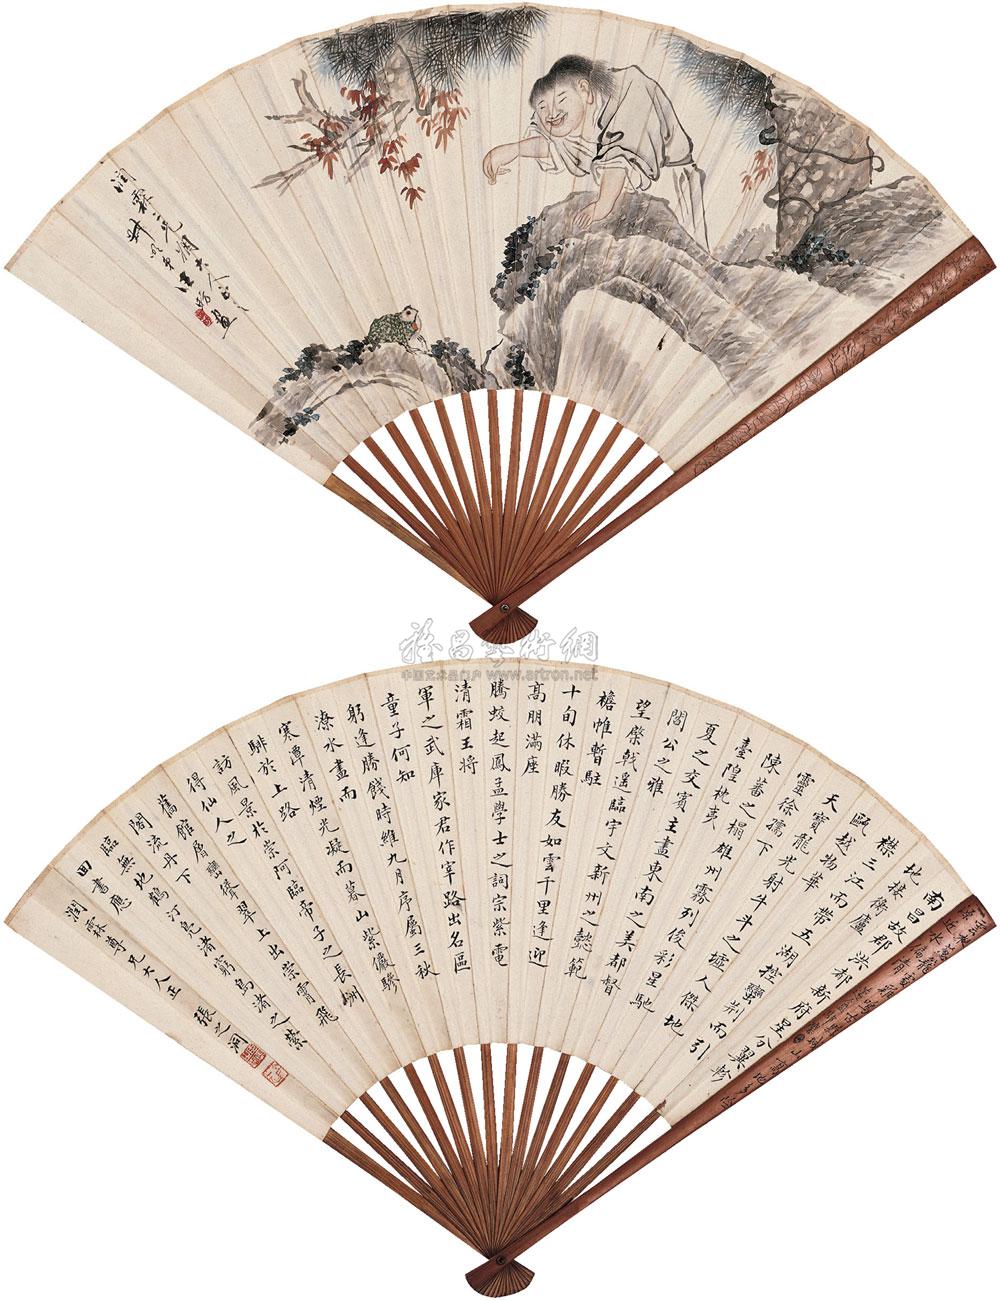 潤霖二兄姻大人正之
汪昉畫
雅昌藝術網
中国艺术品门户 www.artron.net
南昌故郡洪都新府星分翼軫
地接衡廬
襟三江而帶五湖控蠻荊而引
甌越物華
天寶龍光射牛斗之墟人傑地
靈徐孺下
陳蕃之榻雄州霧列俊彩星馳
臺隍枕夷
夏之交賓主盡東南之美都督
閻公之雅
望棨戟遙臨宇文新州之懿範
襜帷暫駐
十旬休暇勝友如雲千里逢迎
高朋滿座
騰蛟起鳳孟學士之詞宗紫電
清霜王將
軍之武庫家君作宰路出名區
童子何知
躬逢勝餞時維九月序屬三秋
潦水盡而
寒潭清煙光凝而暮山紫儼驂
騑於上路
訪風景於崇阿臨帝子之長洲
得仙人之
舊館層巒聳翠上出崇霄飛
閣流丹下
臨無地鶴汀鳧渚窮島渚之縈
回書應
潤霖尊兄大人正 張之洞